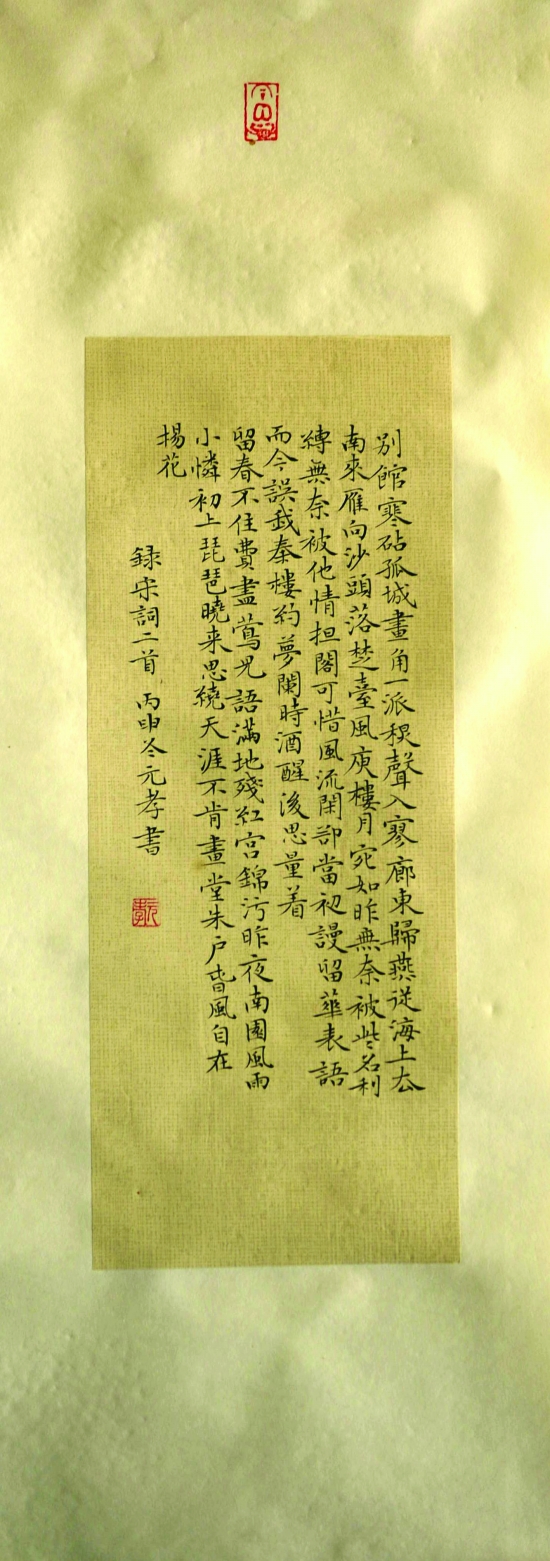 別館寒砧孤城畫角一派秌聲入寥廊東歸燕従海上厺
南來雁向沙頭落楚臺風庾樓月宛如昨無奈被些名利
縛無奈被他情担閣可惜風流閑卻當初謾留華表語
而今誤我秦樓約夢闌時酒醒後思量着
留春不住費盡鶯兒語滿地殘紅宮錦污昨夜南園風雨
小憐初上琵琶曉来思繞天涯不肯畫堂朱戶春風自在
楊花
録宋詞二首 丙申冬元孝書
元孝